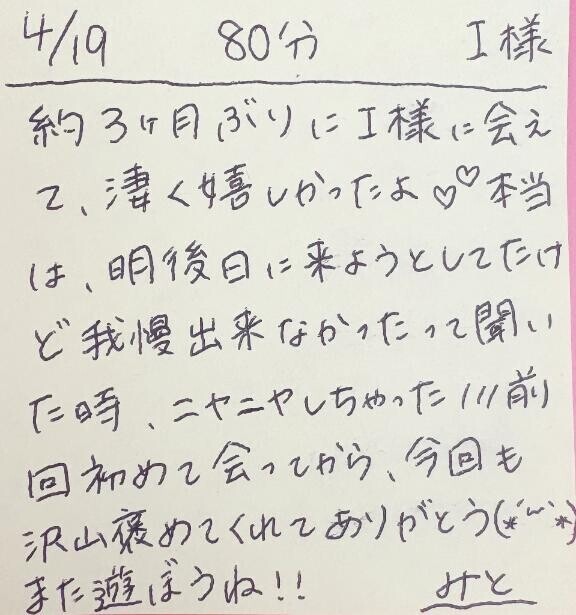 4/19 80分 I様
約3ヶ月ぶりにI様に会え
て、凄く嬉しかったよ♡♡本当
は、明後日に来ようとしてたけ
ど我慢出来なかったって聞い
た時、ニヤニヤしちゃった///前
回初めて会ってから、今回も
沢山褒めてくれてありがとう(*´︶`*)
また遊ぼうね!!
みと